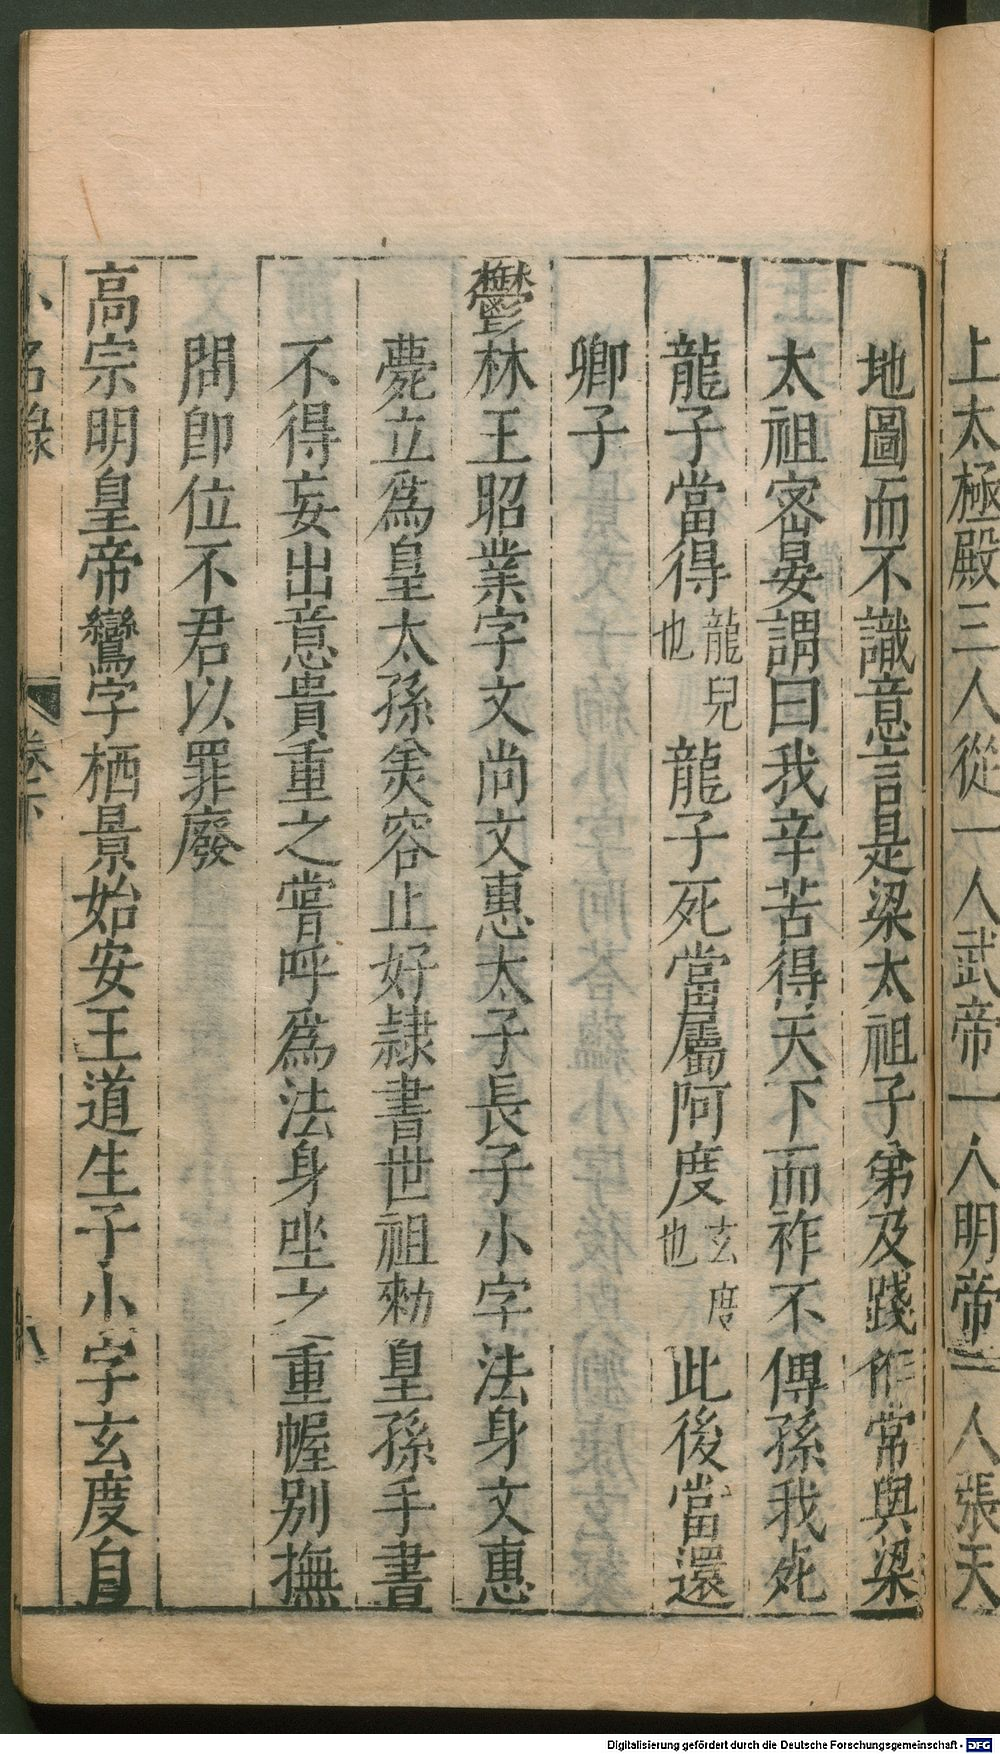 上太極殿三人從一人武帝一人明帝一人張天
地圖而不識意言是梁太祖子弟及踐祚常與梁
太祖密晏謂曰我辛苦得天下而祚不傳孫我死
龍子當得龍兒也龍子死當屬阿度玄度也此後當還
卿子
鬱林王昭業字文尚文惠太子長子小字法身文惠
薨立爲皇太孫美容止好隷書世祖勑皇孫手書
不得妄出意貴重之嘗呼爲法身坐之重幄別撫
問即位不君以罪廢
高宗明皇帝鸞字栖景始安王道生子小字玄度自
小名錄 卷下 八
Digitalisierung gefördert durch die Deutsche Forschungsgemeinschaft - DFG